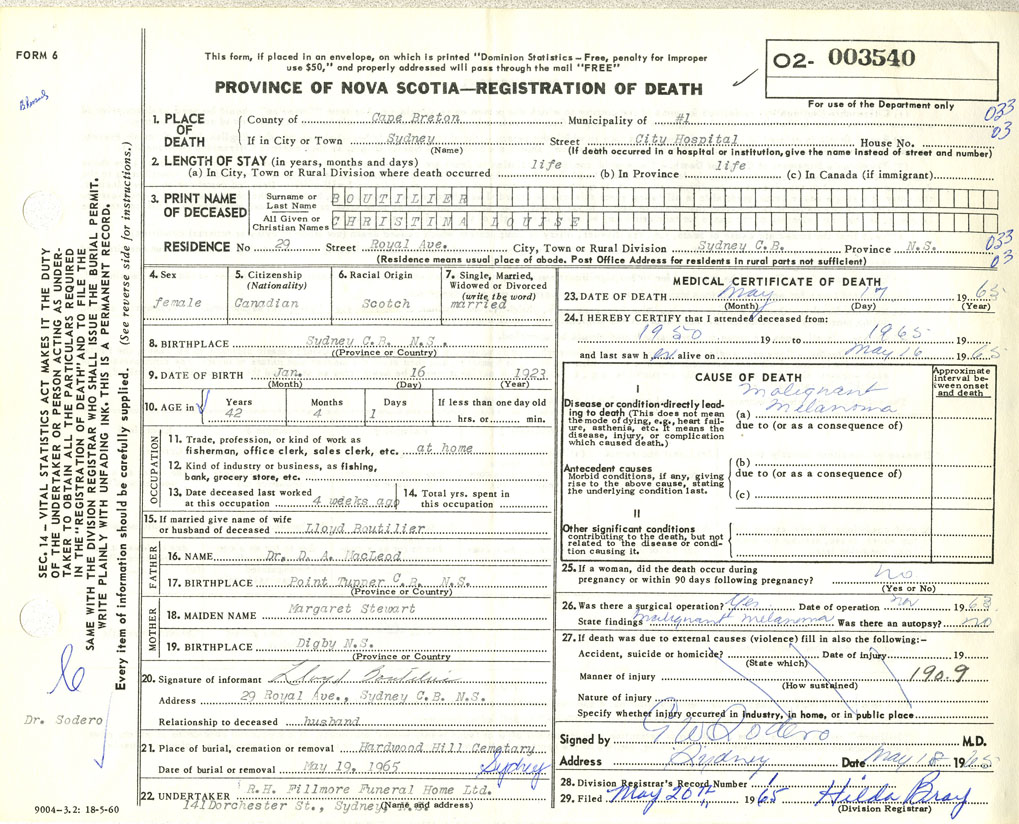 FORM 6
This form, if placed in an envelope, on which is printed "Dominion Statistics – Free, penalty for improper
use $50," and properly addressed will pass through the mail "FREE"
PROVINCE OF NOVA SCOTIA—REGISTRATION OF DEATH
02- 003540
For use of the Department only
SEC. 14 – VITAL STATISTICS ACT MAKES IT THE DUTY
OF THE UNDERTAKER OR PERSON ACTING AS UNDER-
TAKER TO OBTAIN ALL THE PARTICULARS REQUIRED
IN THE "REGISTRATION OF DEATH" AND TO FILE THE
SAME WITH THE DIVISION REGISTRAR WHO SHALL ISSUE THE BURIAL PERMIT.
WRITE PLAINLY WITH UNFADING INK. THIS IS A PERMANENT RECORD.
Every item of information should be carefully supplied. (See reverse side for instructions.)
Dr. Sodero
9004-3.2: 18-5-60
1. PLACE OF DEATH County of Cape Breton Municipality of #1 033
If in City or Town Sydney Street City Hospital House No. 03
(Name) (If death occurred in a hospital or institution, give the name instead of street and number)
2. LENGTH OF STAY (in years, months and days)
(a) In City, Town or Rural Division where death occurred life (b) In Province life (c) In Canada (if immigrant)
3. PRINT NAME OF DECEASED Surname or Last Name BOUTILIER
All Given or Christian Names CHRISTINA LOUISE
RESIDENCE No 29 Street Royal Ave. City, Town or Rural Division Sydney C.B. Province N.S. 033
(Residence means usual place of abode. Post Office Address for residents in rural parts not sufficient) 03
4. Sex female
5. Citizenship (Nationality) Canadian
6. Racial Origin Scotch
7. Single, Married, Widowed or Divorced (write the word) married
8. BIRTHPLACE Sydney C.B. N.S.
(Province or Country)
9. DATE OF BIRTH Jan. 16 1923
(Month) (Day) (Year)
10. AGE in Years 42 Months 4 Days 1 If less than one day old hrs. or min.
OCCUPATION
11. Trade, profession, or kind of work as
fisherman, office clerk, sales clerk, etc. at home
12. Kind of industry or business, as fishing,
bank, grocery store, etc.
13. Date deceased last worked at this occupation 4 weeks ago
14. Total yrs. spent in this occupation
15. If married give name of wife
or husband of deceased Lloyd Boutilier
FATHER
16. NAME Dr. D. A. MacLeod
17. BIRTHPLACE Point Tupper C.B. N.S.
(Province or Country)
MOTHER
18. MAIDEN NAME Margaret Stewart
19. BIRTHPLACE Digby N.S.
(Province or Country
20. Signature of informant Lloyd Boutilier
Address 29 Royal Ave., Sydney C.B. N.S.
Relationship to deceased husband
21. Place of burial, cremation or removal Hardwood Hill Cemetary
Date of burial or removal May 19, 1965 Sydney
22. UNDERTAKER R.H. Fillmore Funeral Home Ltd.
141 Dorchester St., Sydney,
(Name and address)
MEDICAL CERTIFICATE OF DEATH
23. DATE OF DEATH May 17 1965
(Month) (Day) (Year)
24. I HEREBY CERTIFY that I attended deceased from:
1950 19 to 1965 19
and last saw her alive on May 16 1965
CAUSE OF DEATH
Approximate interval between onset and death
I
Disease or condition directly lead-
ing to death (This does not mean
the mode of dying, e.g., heart fail-
ure, asthenia, etc. It means the
disease, injury, or complication
which caused death.)
(a) Malignant Melanoma
due to (or as a consequence of)
Antecedent causes
Morbid conditions, if any, giving
rise to the above cause, stating
the underlying condition last.
(b)
due to (or as a consequence of)
(c)
II
Other significant conditions
contributing to the death, but not
related to the disease or condi-
tion causing it.
25. If a woman, did the death occur during
pregnancy or within 90 days following pregnancy? no
(Yes or No)
26. Was there a surgical operation? Yes Date of operation nov 1963
State findings malignant melanoma Was there an autopsy? no
27. If death was due to external causes (violence) fill in also the following:–
Accident, suicide or homicide? Date of injury 19
(State which)
Manner of injury 190.9
(How sustained)
Nature of injury
Specify whether injury occurred in industry, in home, or in public place
Signed by G W Sodero M.D.
Address Sydney Date May 18 1965
28. Division Registrar's Record Number
29. Filed May 20th 1965 Hilda Bray
(Division Registrar)